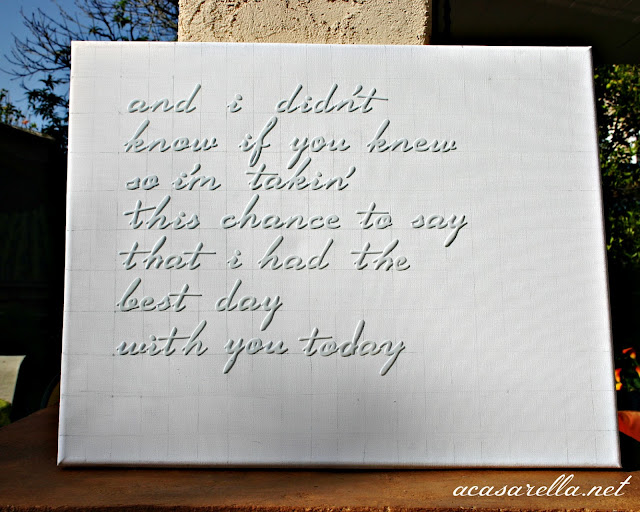 and i didn't
know if you knew
so i'm takin'
this chance to say
that i had the
best day
with you today
acasarella.net